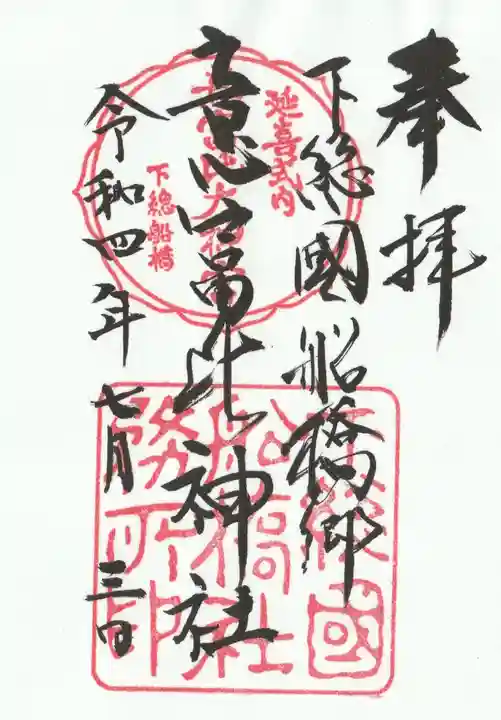 奉拝
下総國船橋郷
意富比神社
令和四年七月三日
延喜式内
意富比大神宮
下総船橋